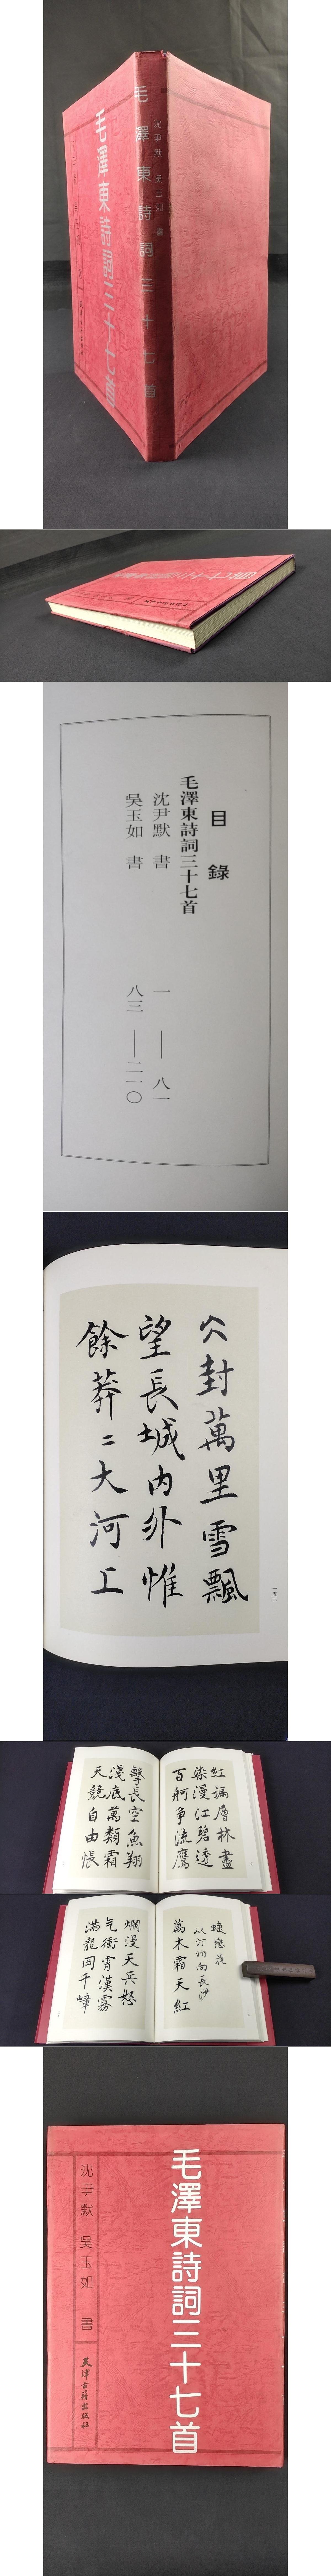 毛澤東詩詞三十七首
沈尹默 吳玉如 書
毛澤東詩詞三十七首
目錄
毛澤東詩詞三十七首
沈尹默 書 一——八一
吳玉如 書 八三——二一〇
封萬里雪飄
望長城内外惟
餘莽〻大河上
紅遍層林盡
染漫江碧透
百舸争流鷹
擊長空魚翔
淺底萬類霜
天競自由悵
蝶戀花
從汀州向長沙
萬木霜天紅
爛漫天兵怒
气衝霄漢霧
滿龍岡千嶂
毛澤東詩詞三十七首
沈尹默 吳玉如 書
天津古籍出版社